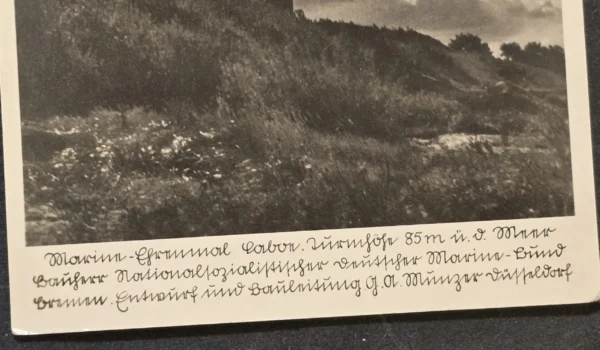 Marine-Ehrenmal Laboe. Turmhöhe 85m ü. d. Meer
Bauherr Nationalsozialistischer Deutscher Marine-Bund
Bremen. Entwurf und Bauleitung G. A. Munzer Düsseldorf